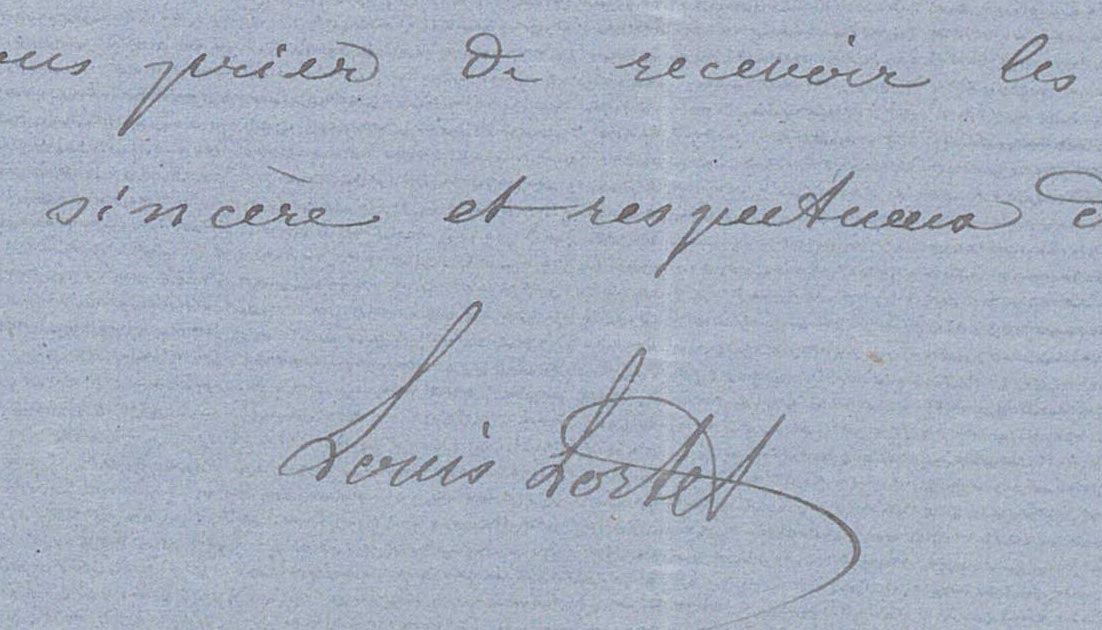 ous prier de recevoir les
sincère et respectueux d
Louis Lortet